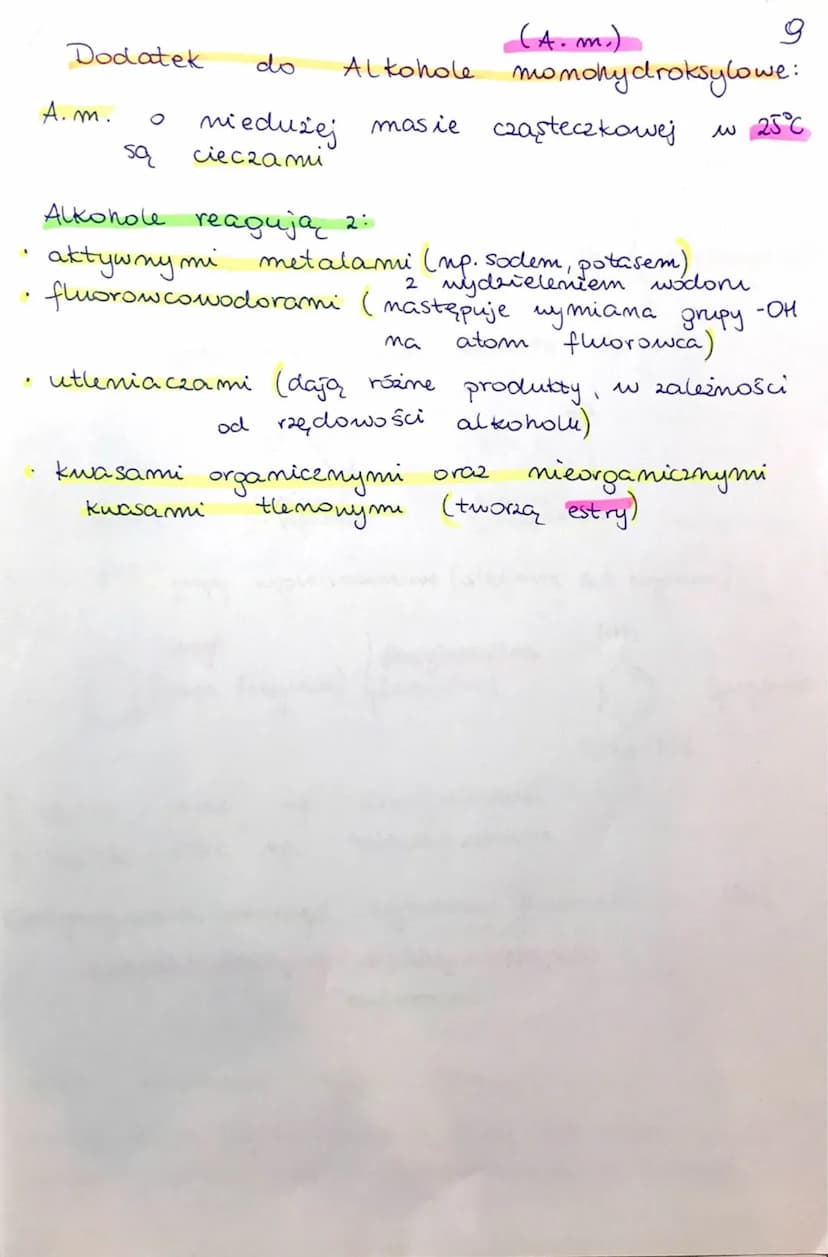 9
(A.m.)
Dodatek do Alkohole monohydroksylowe:
A.m. o niedużej masie cząsteczkowej w 25°C
są cieczami
Alkohole reagują z:
• aktywnymi metalami (np. sodem, potasem)
z wydzieleniem wodoru
• fluorowcowodorami (następuje wymiana grupy -OH
na atom fluorowca)
• utleniaczami (dają różne produkty, w zależności
od rzędowości alkoholu)
• kwasami organicznymi oraz nieorganicznymi
kwasami tlenowymi (tworzą estry)